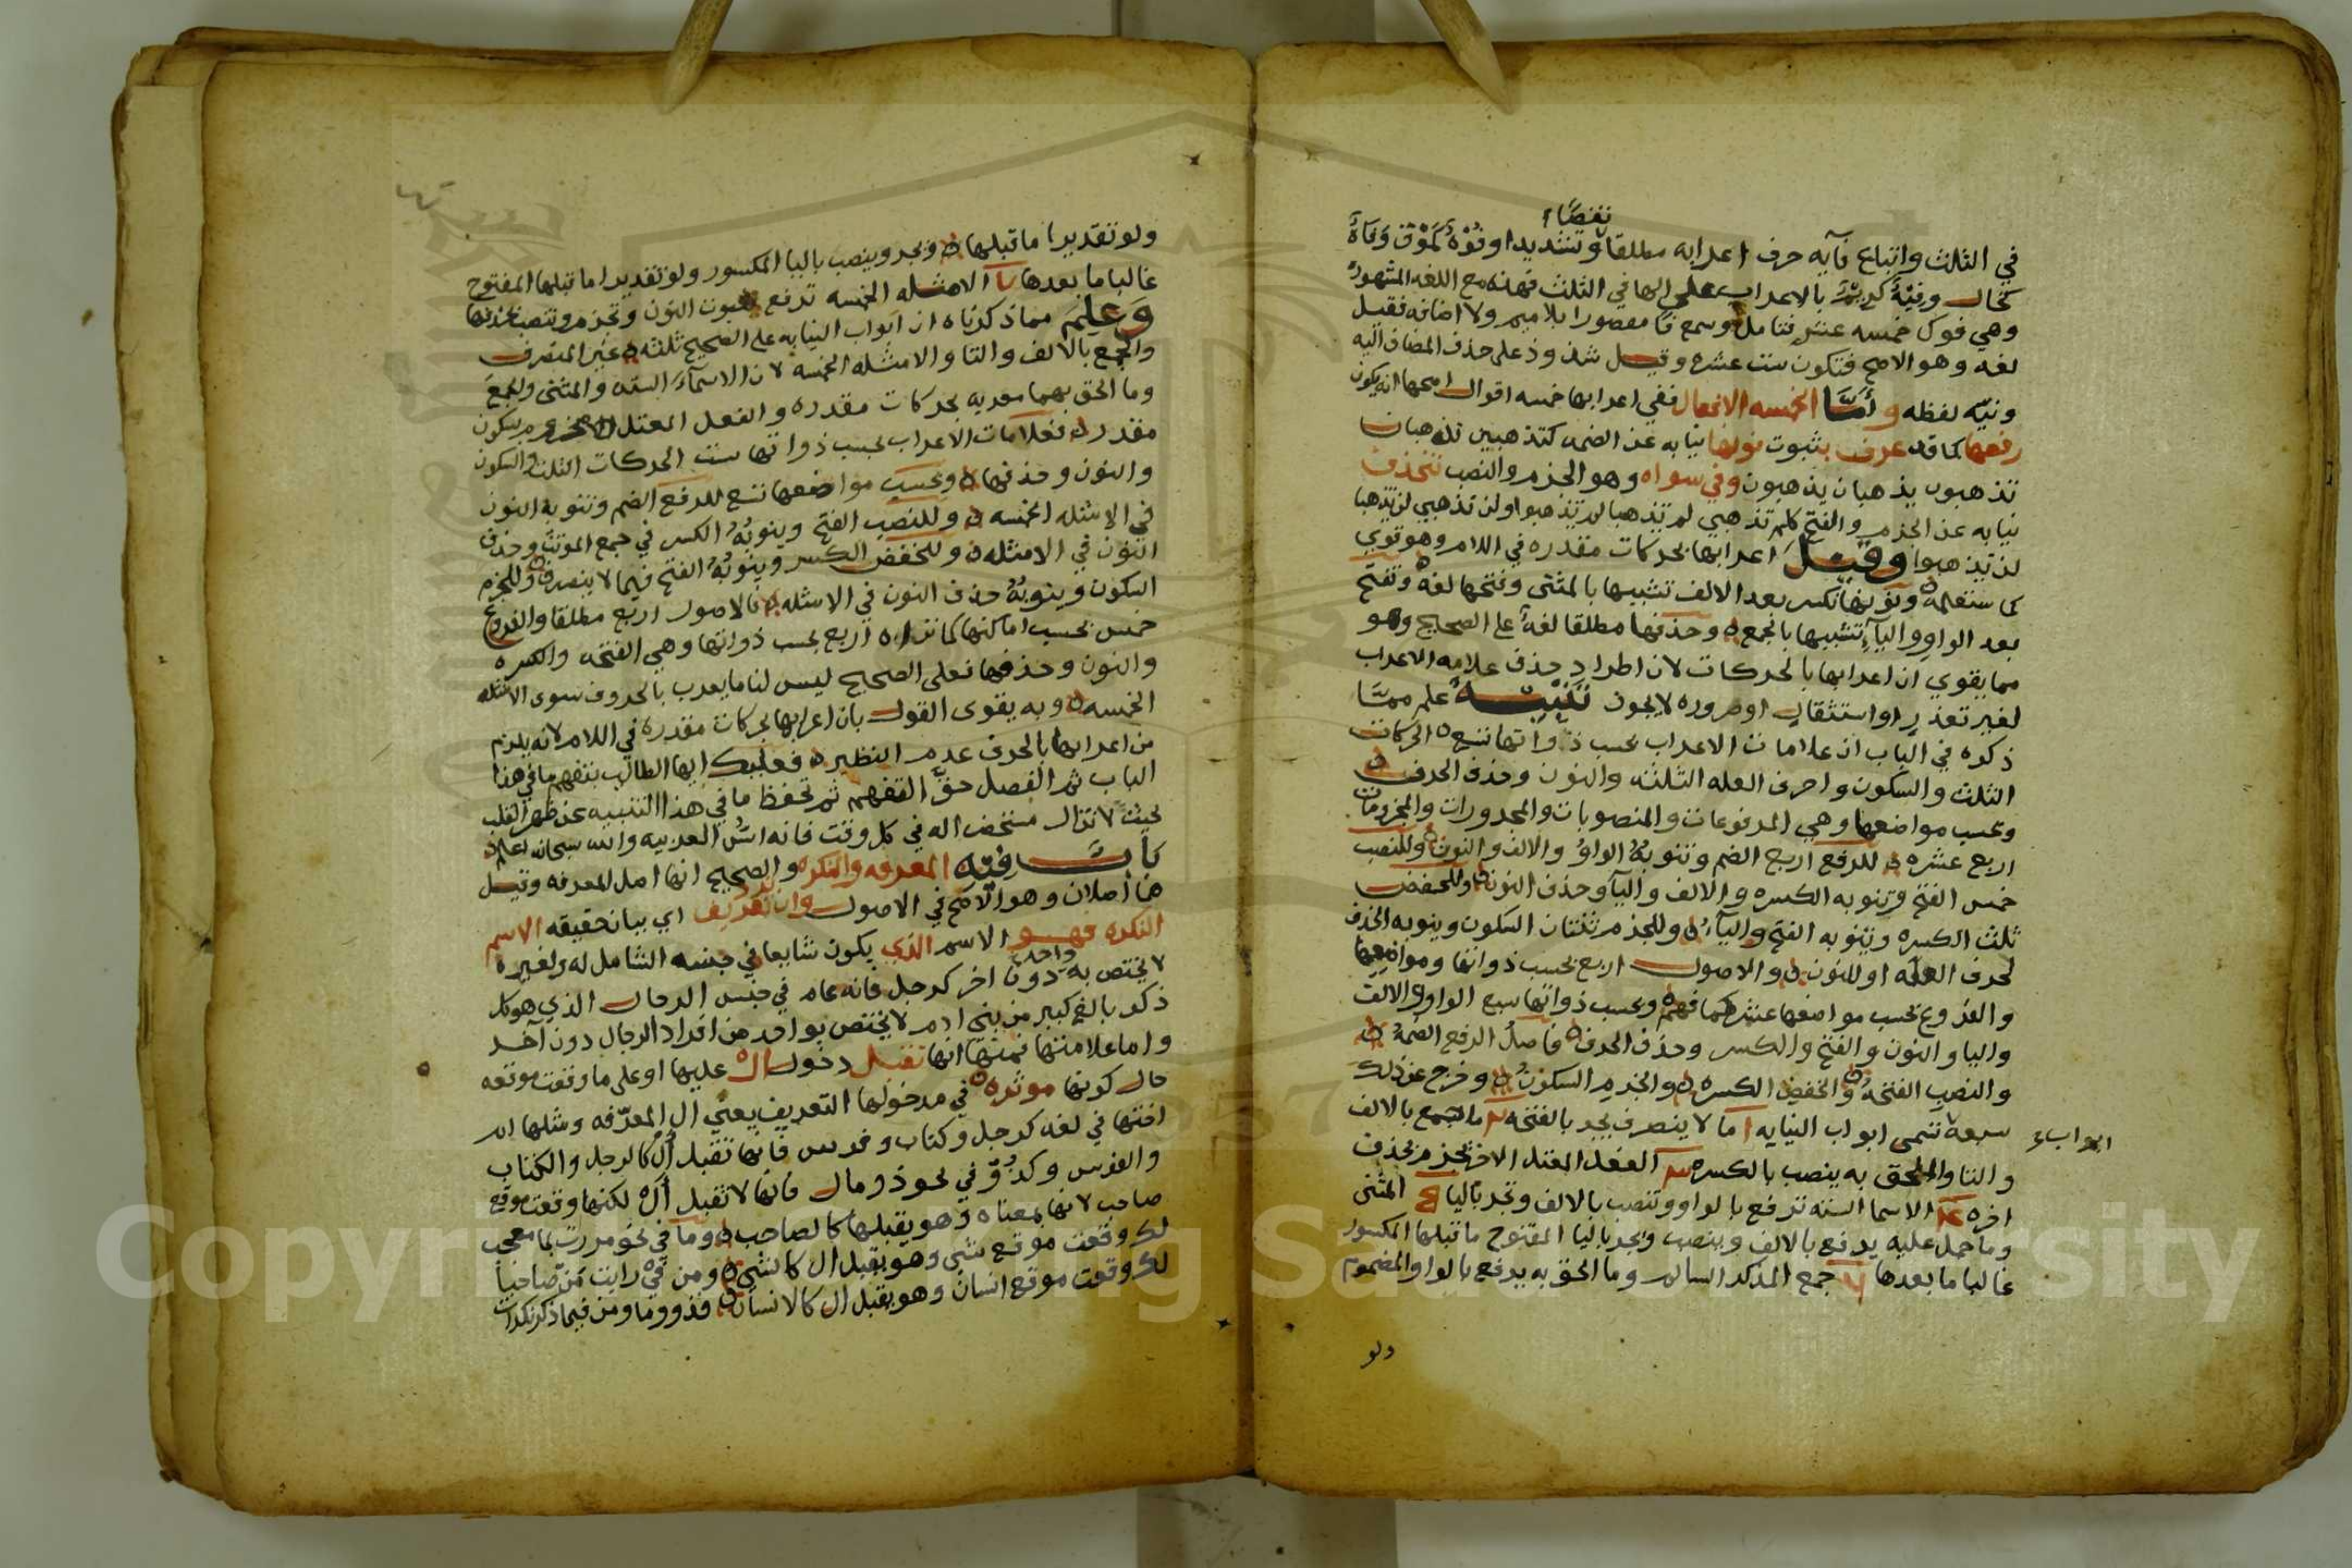 نقصًا
في الثلث واتباع فآيه حرف اعرابه مطلقا وتشديدا وفُوْهُ كمَوْق وَفاهً
كخال وفيْهً كديْرٍ بالاعراب على الها في الثلث فهذه مع اللغه المشهوره
وهي فوك خمسه عشر فتامل وسمع فا مقصورا بلا ميم ولا اضافه فقيل
لغه وهو الاصح فتكون ست عشرع وقيل شذوذ على حذف المضاف اليه
ونيّه لفظه وأمّا الخمسه الافعال ففي اعرابها خمسه اقوال اصحها انه يكون
رفعها كما قد عرف بثبوت نونها نيابه عن الضمه كتذهبين تذهبان
تذهبون يذهبان يذهبون وفي سواه وهو الجزم والنصب تنحذف
نيابه عن الجزم والفتح كلم تذهبي لم تذهبا لم تذهبوا ولن تذهبي لن تذهبا
لن تذهبوا وقيل اعرابها بحركات مقدره في اللام وهو قوي
كما ستعلمه ونونها تكسر بعد الالف تشبيها بالمثنى وفتحها لغه وتفتح
بعد الواو واليآء تشبيها بالجمع وحذفها مطلقا لغة على الصحيح وهو
مما يقوي ان اعرابها بالحركات لان اطراد حذف علامه الاعراب
لغير تعذر او استثقال او ضروره لا يجوز تنبيه علم ممّا
ذكره في الباب ان علامات الاعراب بحسب ذواتها تسع الحركات
الثلث والسكون واحرف العله الثلثه والنون وحذف الحرف
وبحسب مواضعها وهي المرفوعات والمنصوبات والمجرورات والمجزومات
اربع عشره للرفع اربع الضم وتنوبهُ الواو والالف والنون وللنصب
خمس الفتح وتنوبه الكسره والالف واليآ وحذف النون وللخفض
ثلث الكسره وتنوبه الفتح واليآء وللجزم ثنتان السكون وينوبه الحذف
لحرف العله او للنون والاصول اربع بحسب ذواتها ومواضعها
والفروع بحسب مواضعها عشر كما فهم وبحسب ذواتها سبع الواو والالف
واليا والنون والفتح والكسر وحذف الحرف فاصل الرفع الضمهُ
والنصب الفتحهُ والخفض الكسره والجزم السكونُ وخرج عن ذلك
سبعة تسمى ابواب النيابه ا ما لا ينصرف يجر بالفتحه ما جمع بالالف
ابواب
والتا والملحق به ينصب بالكسره الفعل المعتل الاخر يجزم بحذف
اخره الاسما السته ترفع بالواو وتنصب بالالف وتجر باليا المثنى
وما حمل عليه يرفع بالالف وينصب ويجر باليا المفتوح ما قبلها المكسور
غالبا ما بعدها جمع المذكر السالم وما الحق به يرفع بالواو المضموم
ولو
ولو تقديرا ما قبلها ويجر وينصب باليا المكسور ولو تقديرا ما قبلها المفتوح
غالبا ما بعدها الامثله الخمسه ترفع بثبوت النون وتجزم وتنصب بحذفها
وعلم مما ذكرناه ان ابواب النيابه على الصحيح ثلثه غير المنصرف
والجمع بالالف والتا والامثله الخمسه لان الاسمآء السته والمثنى والجمع
وما الحق بهما معربه بحركات مقدره والفعل المعتل الاخر مجزوم بسكون
مقدر فعلامات الاعراب بحسب ذواتها ست الحركات الثلث والسكون
والنون وحذفها وبحسب مواضعها تسع للرفع الضم وتنوبه النون
في الامثله الخمسه وللنصب الفتح وينوبُهُ الكسر في جمع المونث وحذف
النون في الامثله وللخفض الكسر وينوبُهُ الفتح فيما لا ينصرف وللجزم
السكون وينوبُهُ حذف النون في الامثله فالاصول اربع مطلقا والفروع
خمس بحسب اماكنها كما تراه اربع بحسب ذواتها وهي الفتحه والكسره
والنون وحذفها فعلى الصحيح ليس لنا ما يعرب بالحروف سوى الامثله
الخمسه وبه يقوى القول بان اعرابها بحركات مقدره في اللام لانه يلزم
من اعرابها بالحرف عدم النظير فعليك ايها الطالب بتفهم ما في هذا
الباب ثم الفصل حقّ التفهم ثم تحفظ ما في هذا التنبيه عن ظهر القلب
بحيث لا تزال مستحضرا له في كل وقت فانه اسُّ العربيه والله سبحانه اعلم
باب فيه المعرفه والنكره والصحيح انها اصل للمعرفه وقيل
هما أصلان وهو الاصح في الاصول وان ترد تعريف اي بيان حقيقه الاسم
النكره فهو الاسم الذي يكون شايعا في جنسه الشامل له ولغيره
لا يختص به واحد دون اخر كرجل فانه عام في جنس الرجال الذي هو كل
ذكر بالغ كبير من بني ادم لا يختص بواحد من افراد الرجال دون آخر
واما علامتها فمنها انها تقبل دخول ال عليها او على ما وقعت موقعه
حال كونها موثره في مدخولها التعريف يعني ال المعرّفه ومثلها ام
اختها في لغه كرجل وكتاب وفرس فانها تقبل أل كالرجل والكتاب
والفرس وكذُوّ في نحو ذو مال فانها لا تقبل أل لكنها وقعت موقع
صاحب لانها بمعناه وهو يقبلها كالصاحب وما في نحو مررت بما معجب
لك وقعت موقع شي وهو يقبل ال كالشي ومن في رايت مَن صاحبا
لك وقعت موقع انسان وهو يقبل ال كالانسان فذو وما ومن فيما ذكر نكرات
Copyright © King Saud University